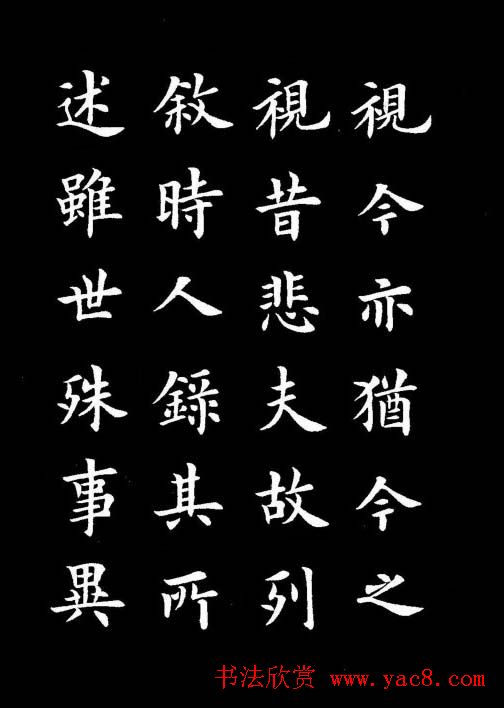 視今亦猶今之
視昔悲夫故列
敘時人錄其所
述雖世殊事異
书法欣赏 www.yac8.com